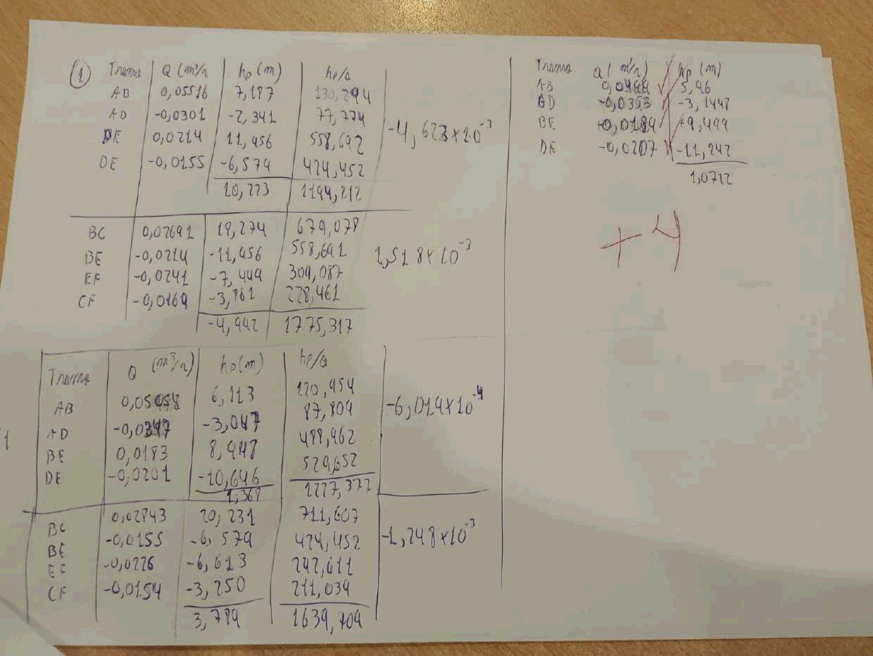 1 Tramo Q (m³/s) hp (m) hp/Q
AB 0,05516 7,187 130,294
AD -0,0301 -2,341 77,774
DE 0,0214 11,956 558,692
DE -0,0155 -6,579 424,452
-4,623×10⁻³
10,223 1194,212
BC 0,02691 18,274 679,078
BE -0,0214 -11,956 558,691
EF -0,0241 -7,449 309,087
CF -0,0169 -3,861 228,461
1,518×10⁻³
-4,992 1775,317
Tramo Q (m³/s) hp (m) hp/Q
AB 6,113 120,454
AD -3,047 87,809
BE 0,0183 8,948 488,962
DE -0,0201 -10,646 529,652
-6,019×10⁻⁴
1,368 1227,377
BC 0,02843 20,231 711,607
BE -0,0155 -6,579 424,452
EF -0,0226 -6,613 292,611
CF -0,0154 -3,250 211,034
-1,248×10⁻³
3,789 1639,704
Tramo Q (m³/s) hp (m)
AB 5,96
AD -0,0353 -3,1442
BE 9,499
DE -0,0207 -11,242
1,0722
+4